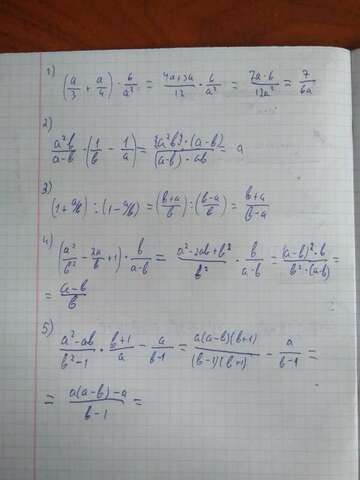 1)
(a/3 + a/4) · 6/a² = 4a+3a/12 · 6/a² = 7a·6/12a² = 7/6a
2)
a²b/a-b · (1/b - 1/a) = (a²b)·(a-b)/(a-b)·ab = a
3)
(1+a/b) : (1-a/b) = (b+a/b) : (b-a/b) = b+a/b-a
4) (a²/b² - 2a/b + 1) · b/a-b = a²-2ab+b²/b² · b/a-b = (a-b)²·b/b²·(a-b) =
= a-b/b
5)
a²-ab/b²-1 · b+1/a - a/b-1 = a(a-b)(b+1)/(b-1)(b+1) - a/b-1 =
= a(a-b)-a/b-1 =